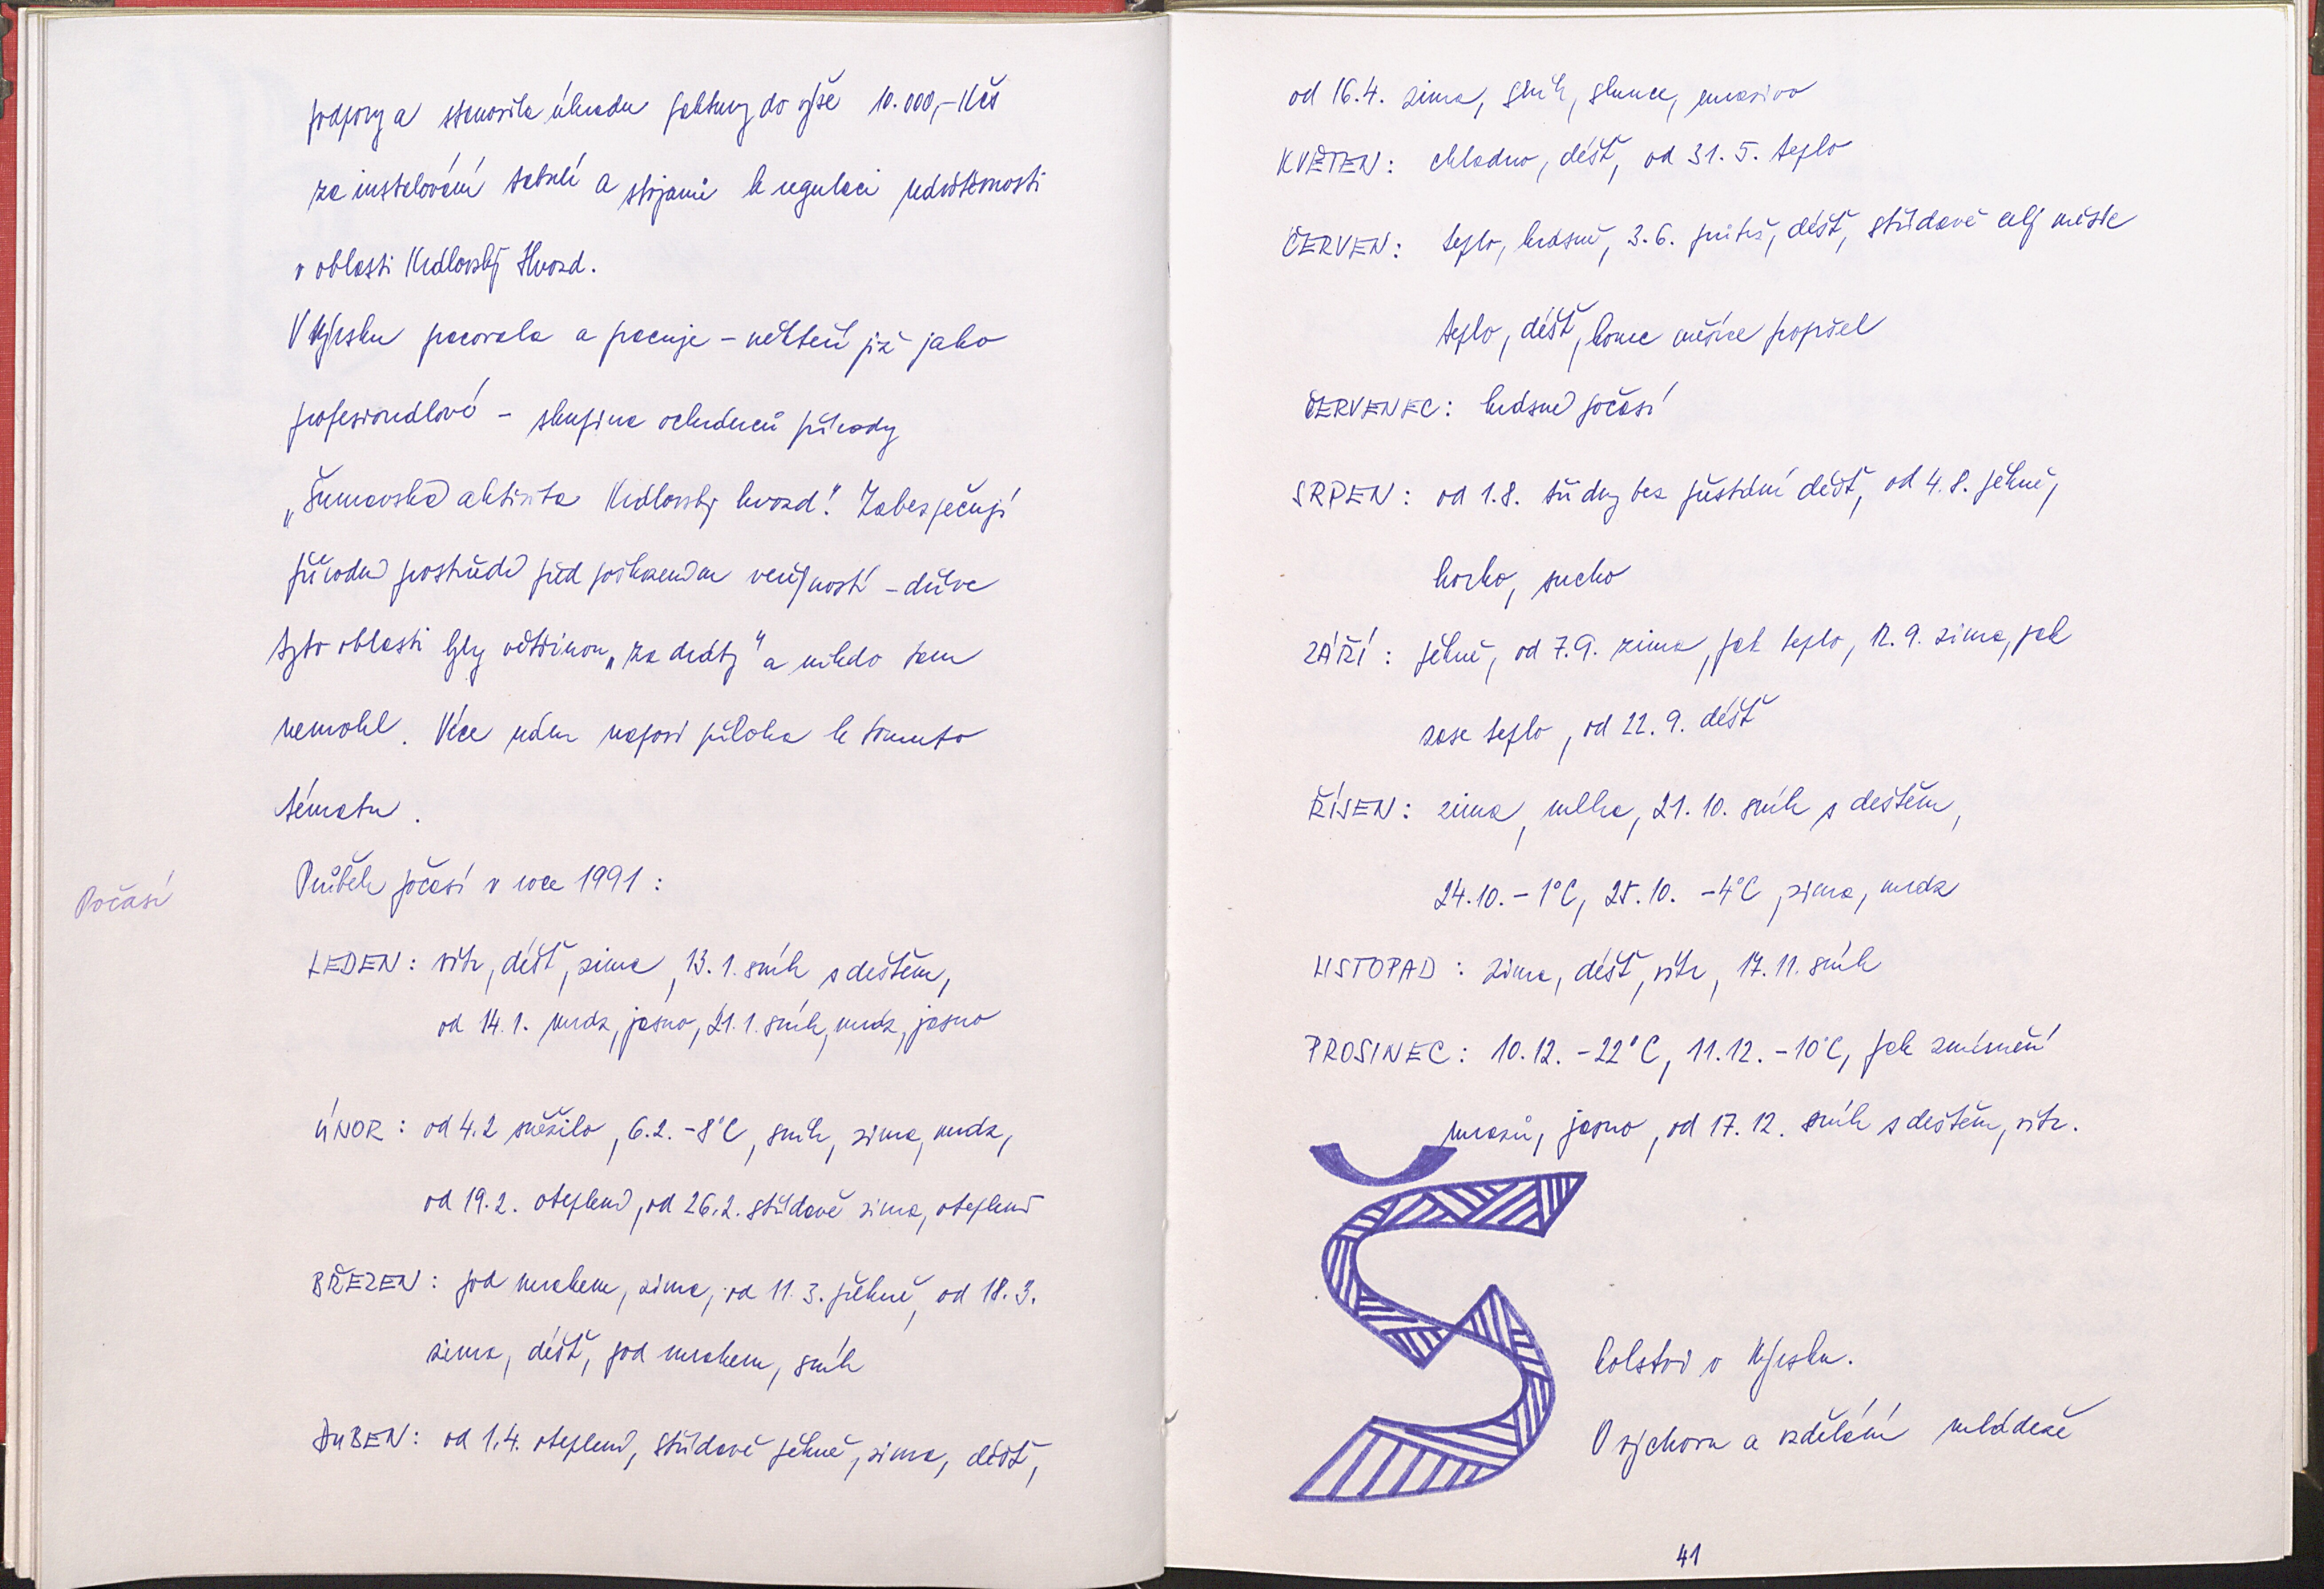 podpory a stanovila úhradu faktury do výše 10.000,- Kčs
za instalování tabulí a stojanů k regulaci návštěvnosti
v oblasti Královský Hvozd.
V Nýrsku pracovala a pracuje – někteří již jako
profesionálové – skupina ochránců přírody
„Šumavská aktivita Královský hvozd". Zabezpečují
přírodní prostředí před poškozením veřejností – dříve
tyto oblasti byly většinou „za dráty" a nikdo tam
nemohl. Více nám napoví příloha k tomuto
tématu.
Počasí
Průběh počasí v roce 1991:
LEDEN: vítr, déšť, zima, 13.1. sníh s deštěm,
od 14.1. mráz, jasno, 21.1. sníh, mráz, jasno
ÚNOR: od 4.2 sněžilo, 6.2. -8°C, sníh, zima, mráz,
od 19.2. oteplení, od 26.2. střídavě zima, oteplení
BŘEZEN: pod mrakem, zima, od 11.3. pěkně, od 18.3.
zima, déšť, pod mrakem, sníh
DUBEN: od 1.4. oteplení, střídavě pěkně, zima, déšť,
od 16.4. zima, sníh, slunce, mrazivo
KVĚTEN: chladno, déšť, od 31.5. teplo
ČERVEN: teplo, krásně, 3.6. průtrž, déšť, střídavě celý měsíc
teplo, déšť, konec měsíce popršel
ČERVENEC: krásné počasí
SRPEN: od 1.8. tři dny bez přestání déšť, od 4.8. pěkně,
horko, sucho
ZÁŘÍ: pěkně, od 7.9. zima, pak teplo, 12.9. zima, pak
zase teplo, od 22.9. déšť
ŘÍJEN: zima, mlha, 21.10. sníh s deštěm,
24.10. -1°C, 25.10. -4°C, zima, mráz
LISTOPAD: zima, déšť, vítr, 17.11. sníh
PROSINEC: 10.12. -22°C, 11.12. -10°C, pak zmírnění
mrazů, jasno, od 17.12. sníh s deštěm, vítr.
Školství v Nýrsku.
O výchovu a vzdělání mládeže
41